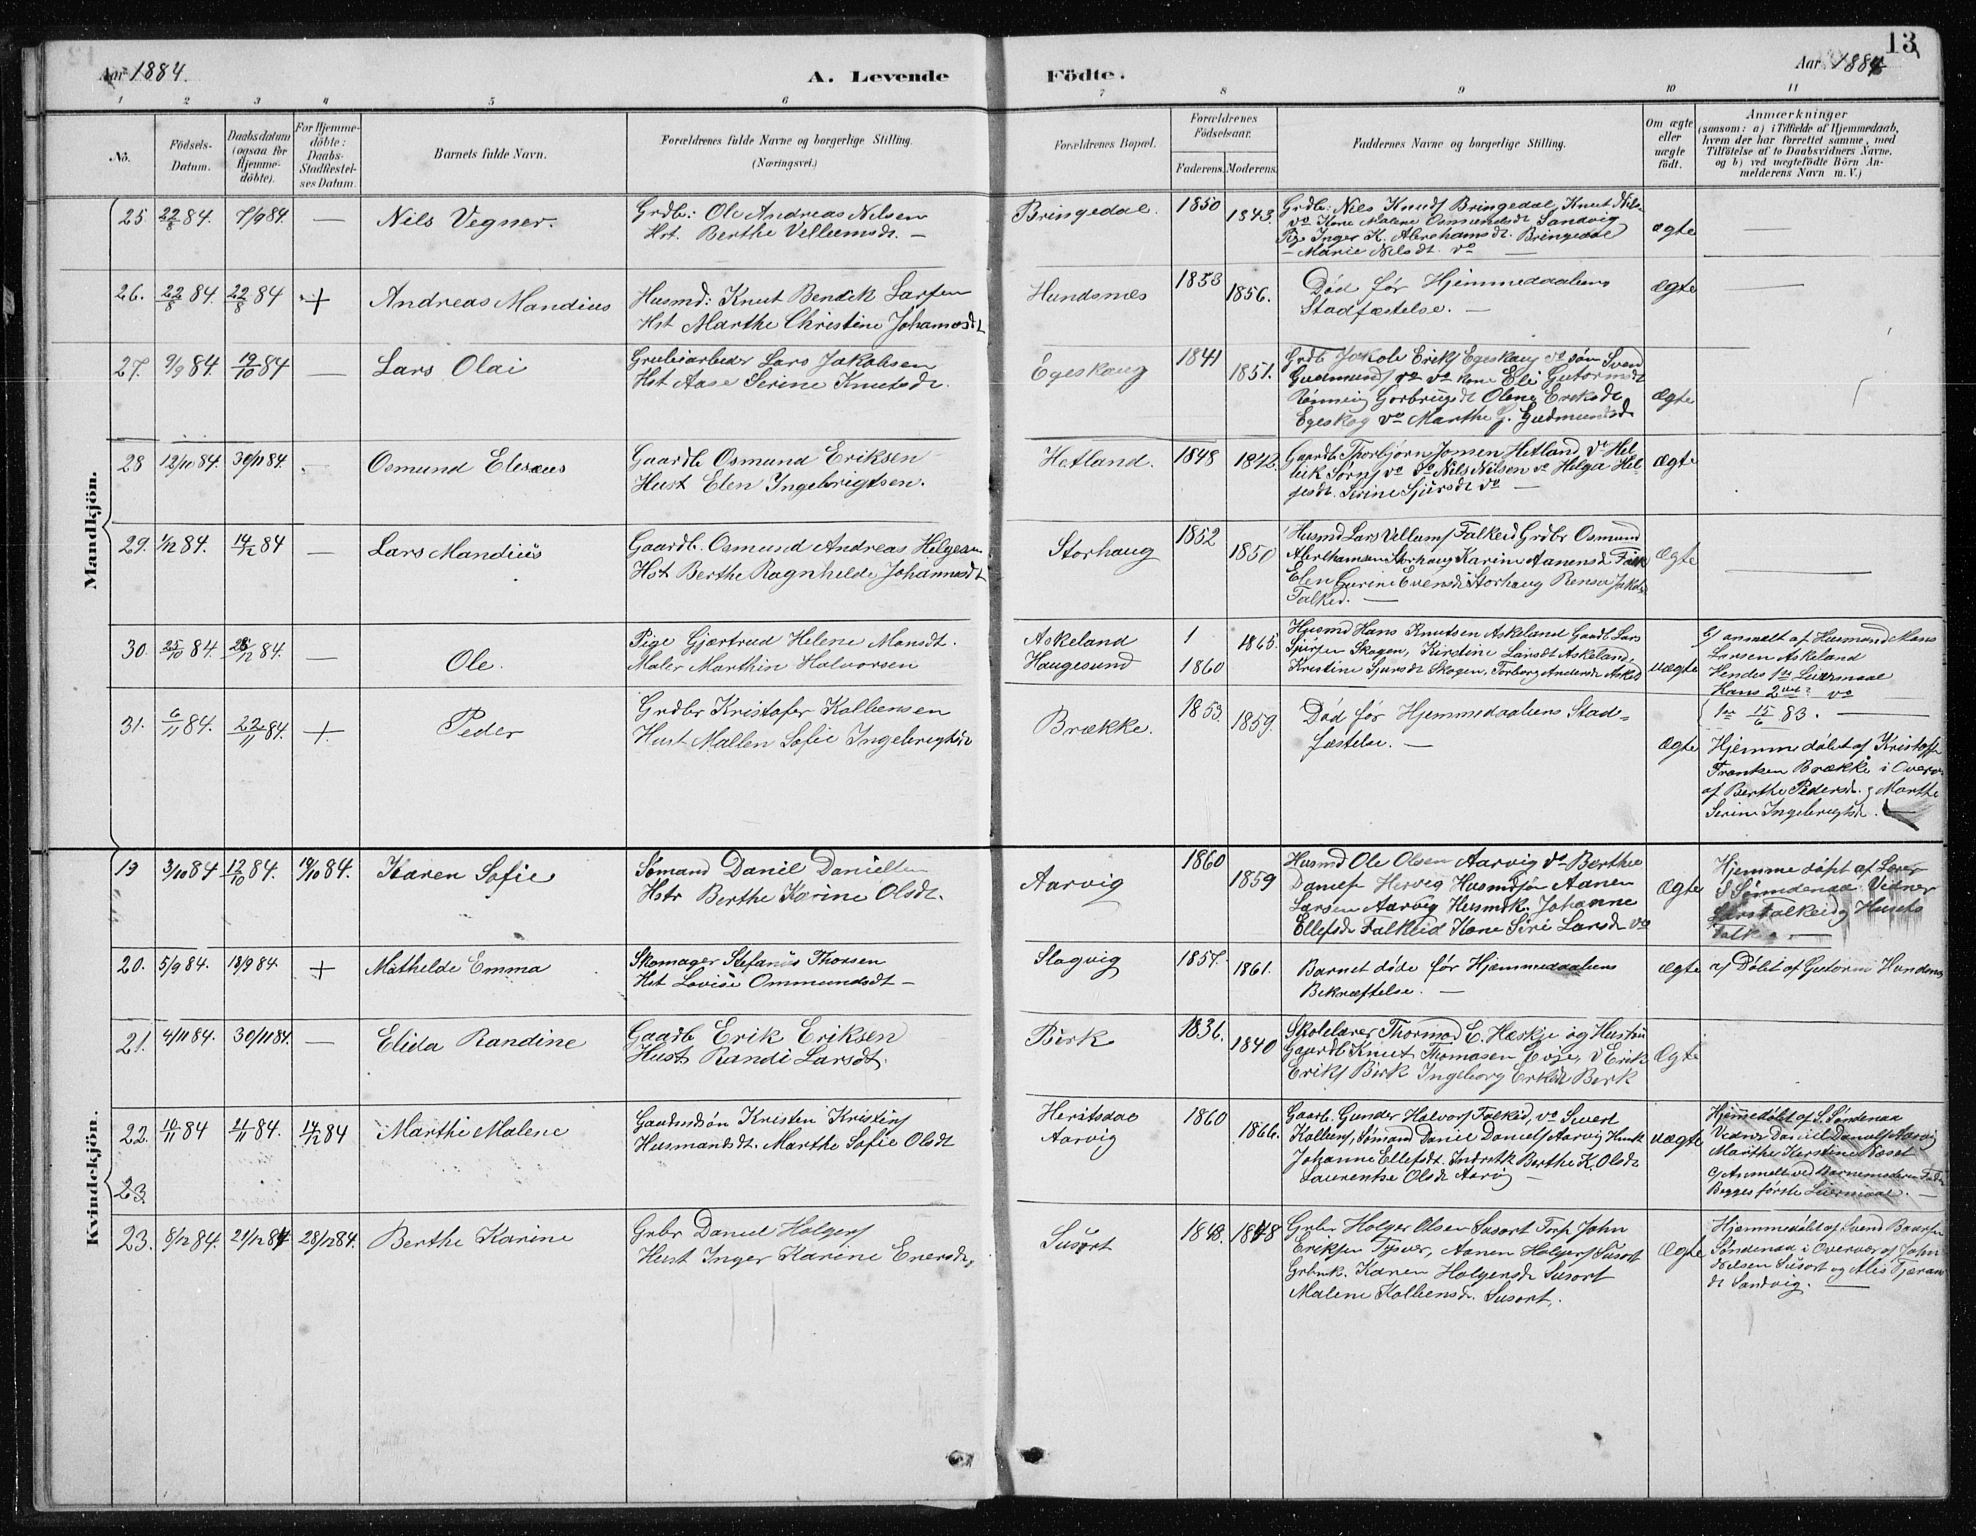 13
Aar 1884.
A. Levende Födte.
Aar 1884
1 2 3 4 5 6 7 8 9 10 11
No.
Födsels-Datum.
Daabsdatum (ogsaa for Hjemme-döbte).
For Hjemme-döbte: Daabs-Stadfæstel-ses Datum.
Barnets fulde Navn.
Forældrenes fulde Navne og borgerlige Stilling. (Næringsvei.)
Forældrenes Bopæl.
Forældrenes Födselsaar.
Faderens. Moderens.
Faddernes Navne og borgerlige Stilling.
Om ægte eller uægte födt.
Anmærkninger
(saasom: a) i Tilfælde af Hjemmedaab,
hvem der har forrettet samme, med
Tilföielse af to Daabsvidners Navne,
og b) ved uægtefödte Börn An-
melderens Navn m. V.)
Mandkjön.
25 22/8 84. 7/9 84 — Nils Vegner.
Grdb: Ole Andreas Nilsen
Hst. Berthe Vellumsdt. —
Bringedal. 1850 1843.
Grdb: Nils Knuds Bringedal, Knut Nils
vo Kone Malene Osmundsdt Sandvig
Pige Inger K. Abrahamsdt. Bringedal
— Marie Nilsdt. vo
ægte —
26. 22/8 84. 22/8 84 + Andreas Mandius
Husmd: Knut Bendik Larsen
Hst Marthe Christine Johannesdt
Hundsnes 1853 1856.
Død før Hjemmedaabens
Stadfæstelse. —
ægte —
27. 9/9 84 19/10 84 — Lars Olai
Grubearbeider Lars Jakobsen
Hst Aase Serine Knutsdt.
Egeskaug 1841 1851.
Grdb Jakob Eriks Egeskaug vo søn Svend
Gudmunds vo vo kone Eli Gutormsdt
Olene Eriksdt
Egeskog vo Marthe G. Gudmundsd
ægte
28 12/10 84. 30/11 84. — Osmund Eleseus
Gaardb Osmund Eriksen
Hust Elen Ingebrigtsen.
Hetland. 1848 1842.
Gaardb Thorbjørn Jonsen Hetland vo Hel-
vo do Nils Nilsen vo Helga Hel-
gesdt. Serine Sjursdt vo —
Ægte
29. 1/12 84. 14/12 84 — Lars Mandius
Gaardb. Osmund Andreas Helgesen
Hst Berthe Ragnhilde Johannesdt
Storhaug 1852 1850
Husmd Lars Vellums Falkeid Grdbr Osmund
Abrahamsen Storhaug Karine Aanensd Falk
Elen Evensdt Storhaug Jakobs
Falkeid. —
Ægte —
30. 25/10 84. 28/12 84. — Ole.
Pige Gjærtrud Helene Mansdt.
Maler Marthin Halvorsen
Askeland
Haugesund
1 1865.
1860
Husmd Hans Knutsen Askeland Gaardb Lars
Sjursen Skogen, Kirstine Larsdt Askeland,
Kristine Sjursdt Skogen, Torborg Andersdt Askel
uægte
b) anmelt af Husmand Mans
Larsen Askeland
Hendes 1ste Leiermaal
Hans 2det? vo
1ste 15/6 83. —
31. 6/11 84. 22/11 84. + Peder
Grdbr Kristofer Kolbensen
Hust Mallen Sofie Ingebrigtsdt
Brække. 1853. 1859.
Død før Hjemmedaabens Stad-
fæstelse. —
ægte
Hjemmedøbt af Kristoffer
Frantsen Brække i Overvær
af Berthe Pedersdt. og Marthe
Serine Ingebrigtsdt.
Kvindekjön.
19 3/10 84 12/10 84. 19/10 84. Karen Sofie
Sømand Daniel Danielsen
Hstr Berthe Karine Olsdt.
Aarvig 1860 1859
Husmd Ole Olsen Aarvig vo Berthe
Daniels Hervig Husmdsøn Aanen
Larsen Aarvig Husmdk. Johanne
Ellefsdt Falkeid Kone Siri Larsdt vo
Ægte
Hjemmedøpt af Lærer
S Sønnedenaa. Vidner
Lars Falkeid og Husets
Folk. —
20. 5/9 84. 13/9 84 + Mathilde Emma
Skomager Stefanus Thorsen
Hst Lovise Ommundsdt —
Slogvig 1857. 1861.
Barnet døde før Hjemmedaabens
Bekræftelse. —
ægte a) Døbt af Gutorm Hundsnes
21. 4/11 84. 30/11 84. — Elida Randine
Gaardb Erik Eriksen
Hust Randi Larsdt.
Birk 1836. 1840
Skolelærer Thormod E. Hæskje og Hustru
Gaardb Knut Thomasen Evje, v Erik
Eriks Birk Ingeborg Eriksdt Birk
Ægte
22. 10/11 84 21/11 84. 14/12 84 Marthe Malene
Gaardmdsøn Kristen Kristens
Husmandsdt. Marthe Sofie Olsdt
Aarvig 1860 1866.
Gaardb. Gunder Halvors Falkeid, vo Sivert
Kolbens, Sømand Daniel Daniels Aarvig Husmk
Johanne Ellefsdt. Berthe K. Olsdt
Laurentse Olsdt Aarvig —
uægte
Hjemmedøbt af S. Søndenaa
Vidner Daniel Daniels Aarvig
Marthe Kerstine Næset
c) Anmelt ved Barnemoderen Fader
Begges første Leiermaal. —
23.
23. 8/12 84. 21/12 84 28/12 84. Berthe Karine
Grbr Daniel Holgers
Hust Inger Karine Eversdt,
Susort 1848. 1848
Grbr Holger Olsen Susort Torp John
Eriksen Tysver, Aanen Holgers Susort
Grbmk. Karen Holgersdt Susort
Malene Kolbensdt. Susort.
Ægte
Hjemmedøbt af Svend Baardsen
Søndenaa i Overvær af John
Nilsen Susort og Alis Tjæran
dt Sandvig. —